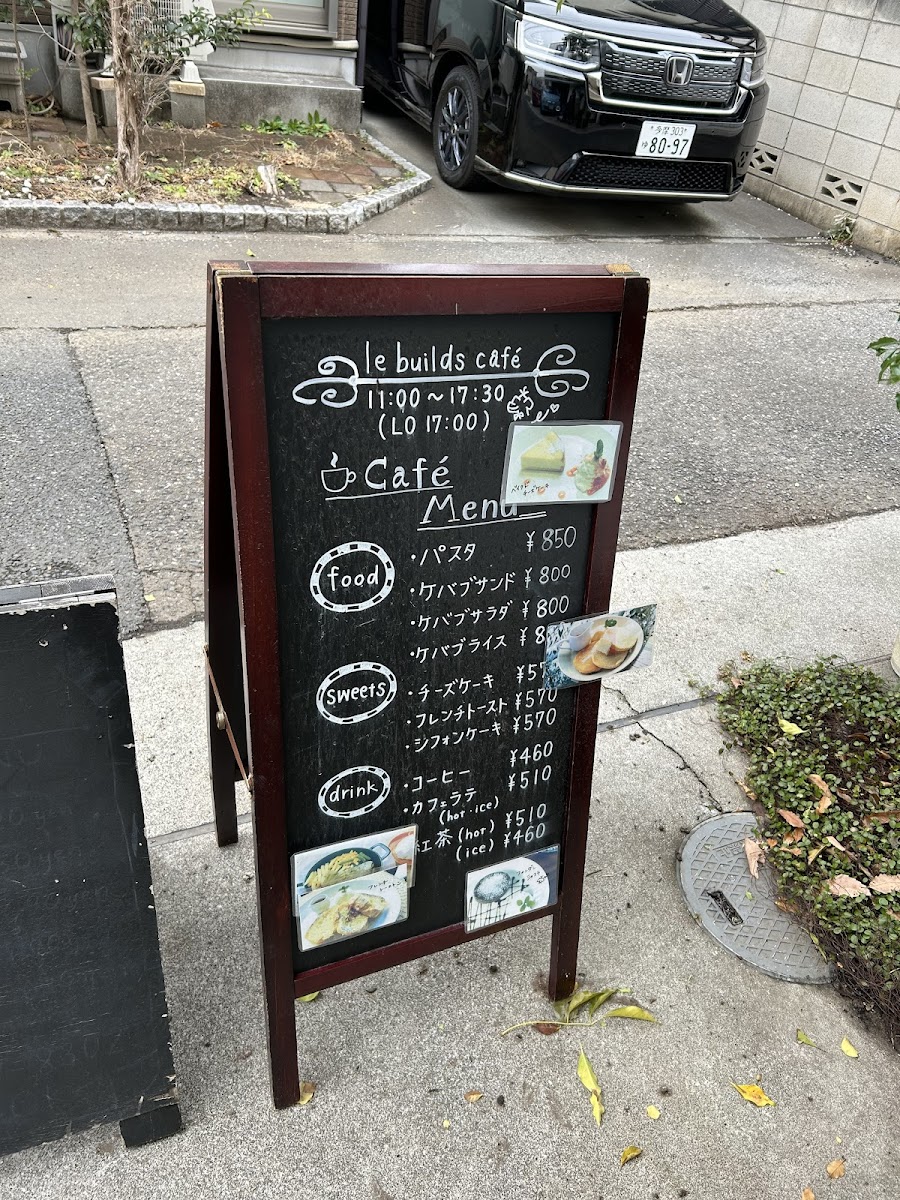 多摩 303
ゆ 80-97
le builds café
11:00～17:30
(LO 17:00)
Café
Menu
food
・パスタ ¥850
・ケバブサンド ¥800
・ケバブサラダ ¥800
・ケバブライス ¥8
sweets
・チーズケーキ ¥57
・フレンチトースト ¥570
・シフォンケーキ ¥570
drink
・コーヒー ¥460
・カフェラテ ¥510
(hot・ice)
紅茶 (hot) ¥510
(ice) ¥460